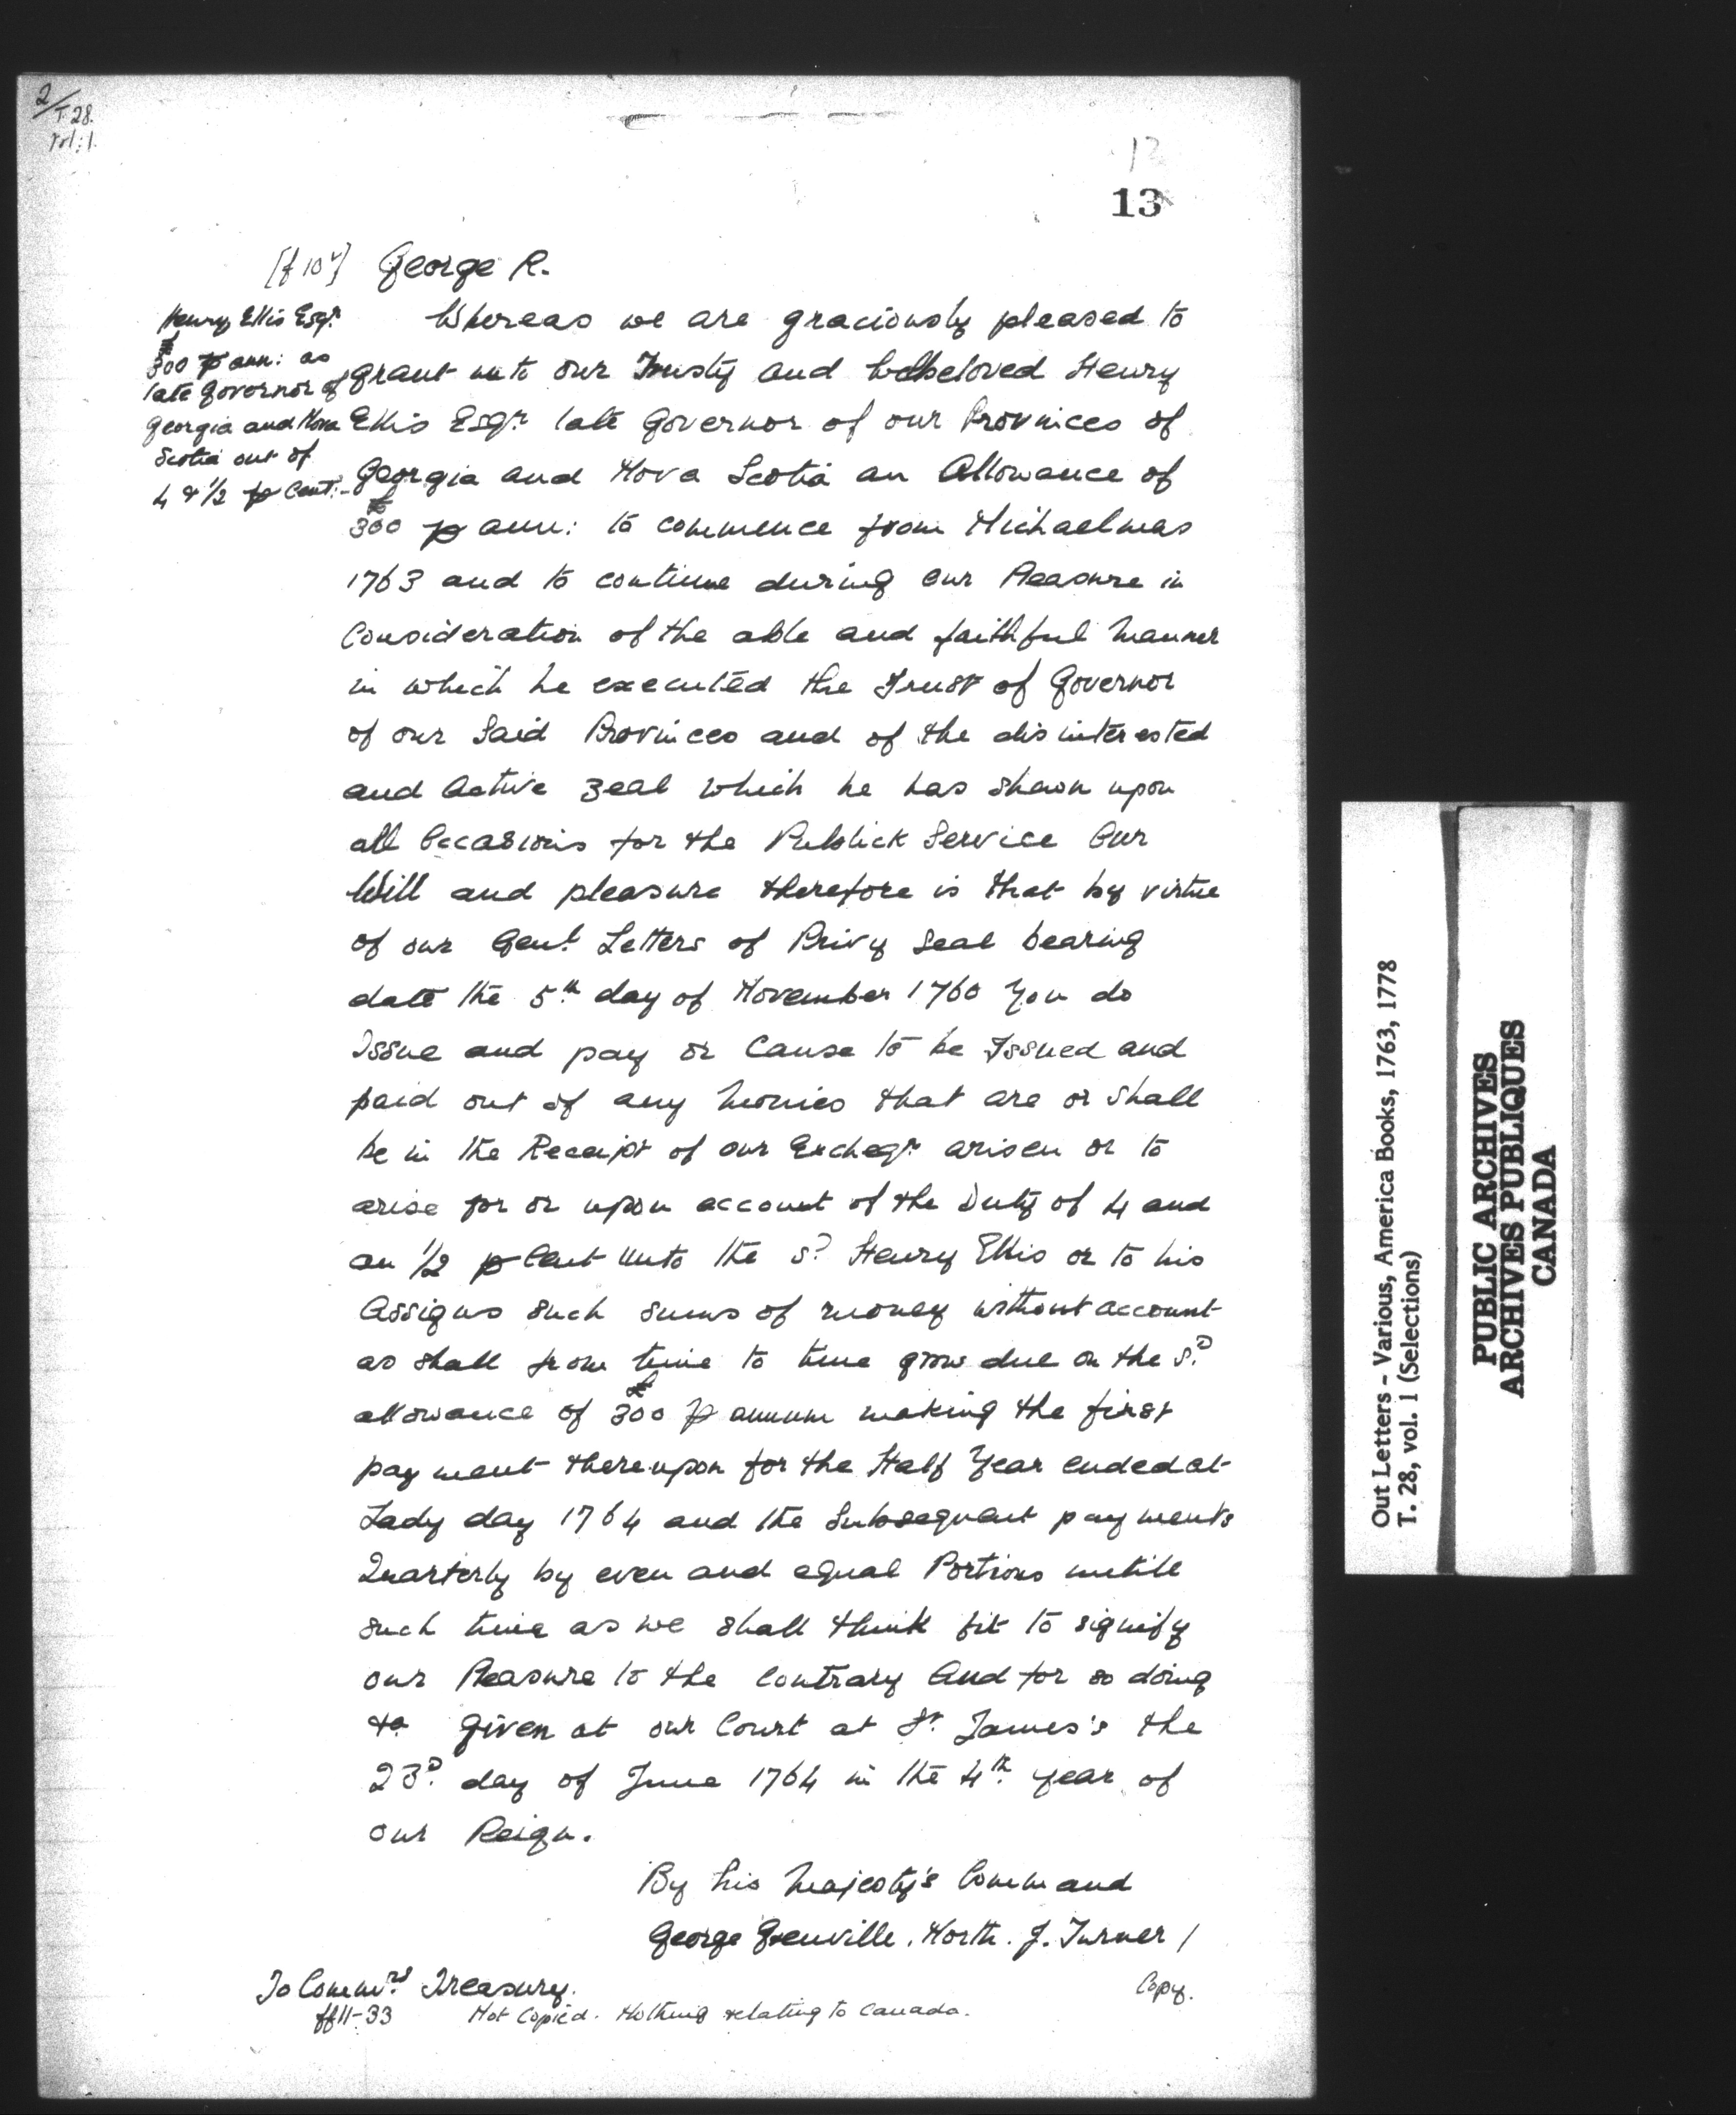 2/
T.28.
Vol:1.
13
13
[f 10v] George R.
Henry Ellis Esqr.
£300 p ann: as
late Governor of
Georgia and Nova
Scotia out of
4 & 1/2 p Cent:-
Whereas we are graciously pleased to
grant unto our Trusty and Welbeloved Henry
Ellis Esqr. late Governor of our Provinces of
Georgia and Nova Scotia an Allowance of
£300 p ann: to commence from Michaelmas
1763 and to continue during our Pleasure in
Consideration of the able and faithful Manner
in which he executed the Trust of Governor
of our Said Provinces and of the disinterested
and Active Zeal which he has shewn upon
all Occasions for the Publick Service Our
Will and pleasure therefore is that by virtue
of our Genl. Letters of Privy Seal bearing
date the 5th day of November 1760 You do
Issue and pay or Cause to be Issued and
paid out of any Monies that are or shall
be in the Receipt of our Excheqr. arisen or to
arise for or upon account of the Duty of 4 and
an 1/2 p Cent Unto the sd. Henry Ellis or to his
Assigns such sums of money without account
as shall from time to time grow due on the sd.
allowance of £300 p annum making the first
payment thereupon for the Half Year ended at
Lady day 1764 and the Subsequent payments
Quarterly by even and equal Portions untill
such time as we shall think fit to signify
our Pleasure to the Contrary And for so doing
&a. Given at our Court at St. James's the
23d. day of June 1764 in the 4th. year of
our Reign.
By his Majesty's Command
George Grenville. North. J. Turner /
To Commrs. Treasury.
Copy.
ff11-33 Not Copied. Nothing relating to Canada.
Out Letters – Various, America Books, 1763, 1778
T. 28, vol. 1 (Selections)
PUBLIC ARCHIVES
ARCHIVES PUBLIQUES
CANADA